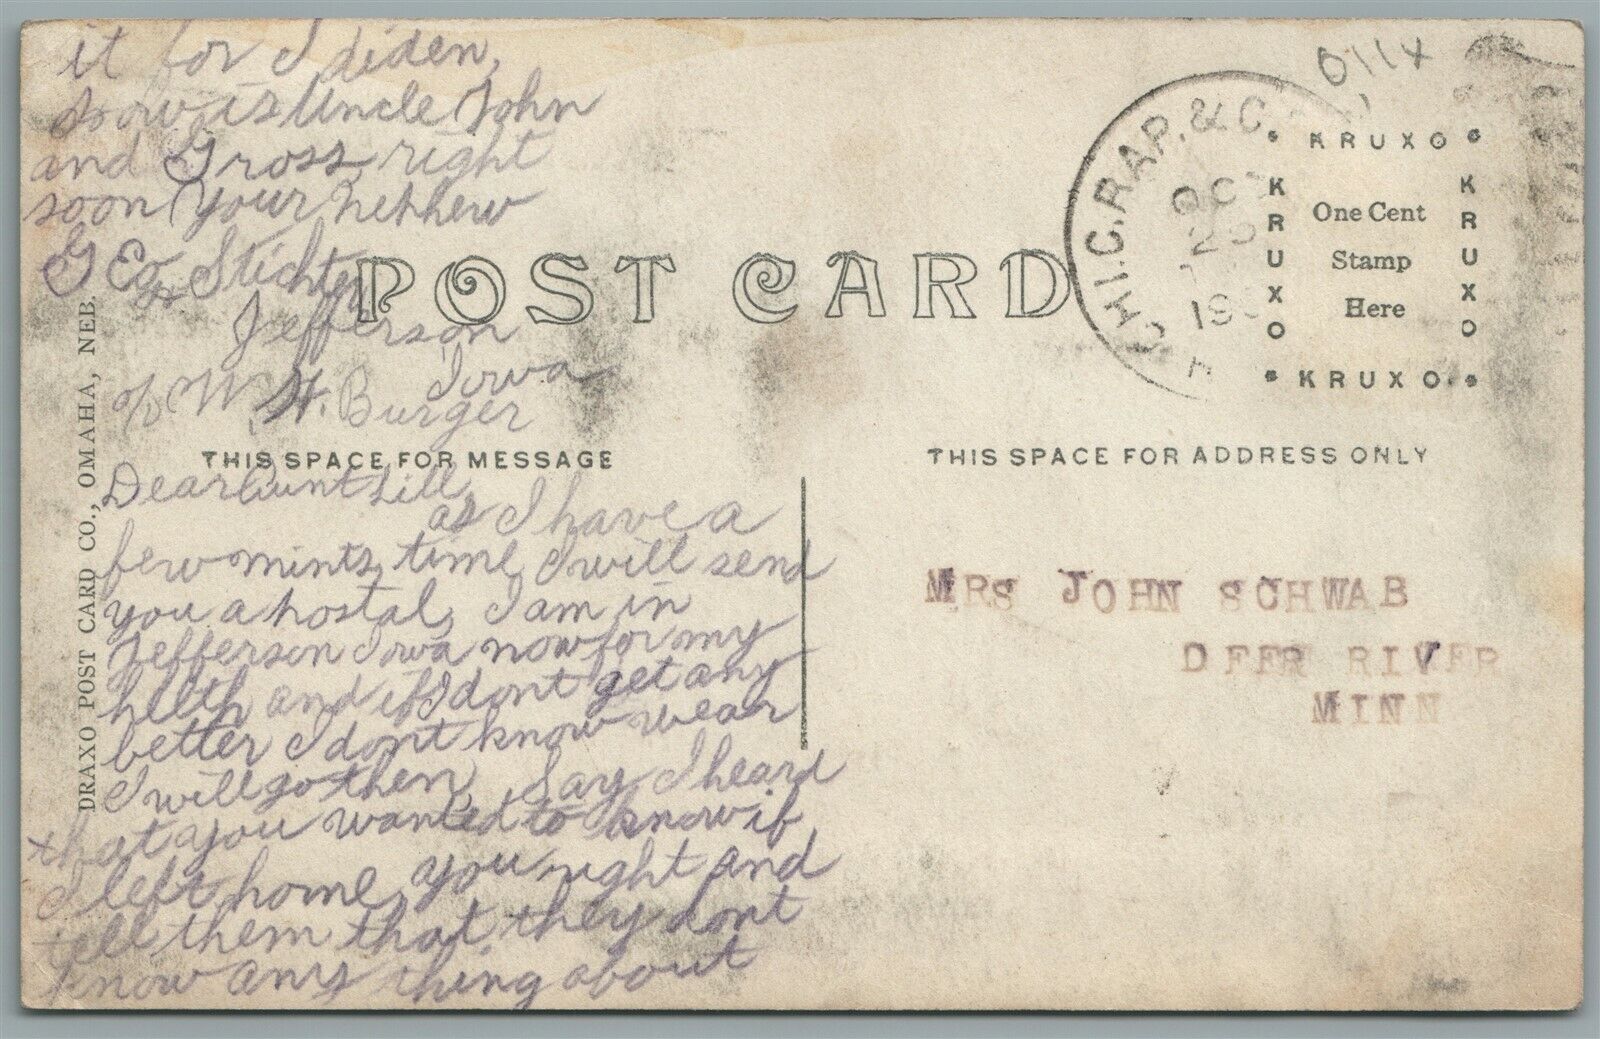 it for I diden,
How is Uncle John
and Gross, right
soon your nephew
G Eo Stichter
Jefferson
Iowa
c/o W H. Burger
POST CARD
THIS SPACE FOR MESSAGE
Dear Aunt Lill,
as I have a
few mints, time, I will send
you a postal, I am in
Jefferson Iowa now for my
helth and if I dont get any
better I dont know wear
I will go then, Say I heard
that you wanted to know if
I left home, you right and
tell them that they dont
know any thing about
DRAXO POST CARD CO., OMAHA, NEB.
CHI.C.RAP. & C.
OCT
190
0114
KRUXO
KRUXO
KRUXO
One Cent
Stamp
Here
KRUXO
THIS SPACE FOR ADDRESS ONLY
MRS JOHN SCHWAB
DEER RIVER
MINN